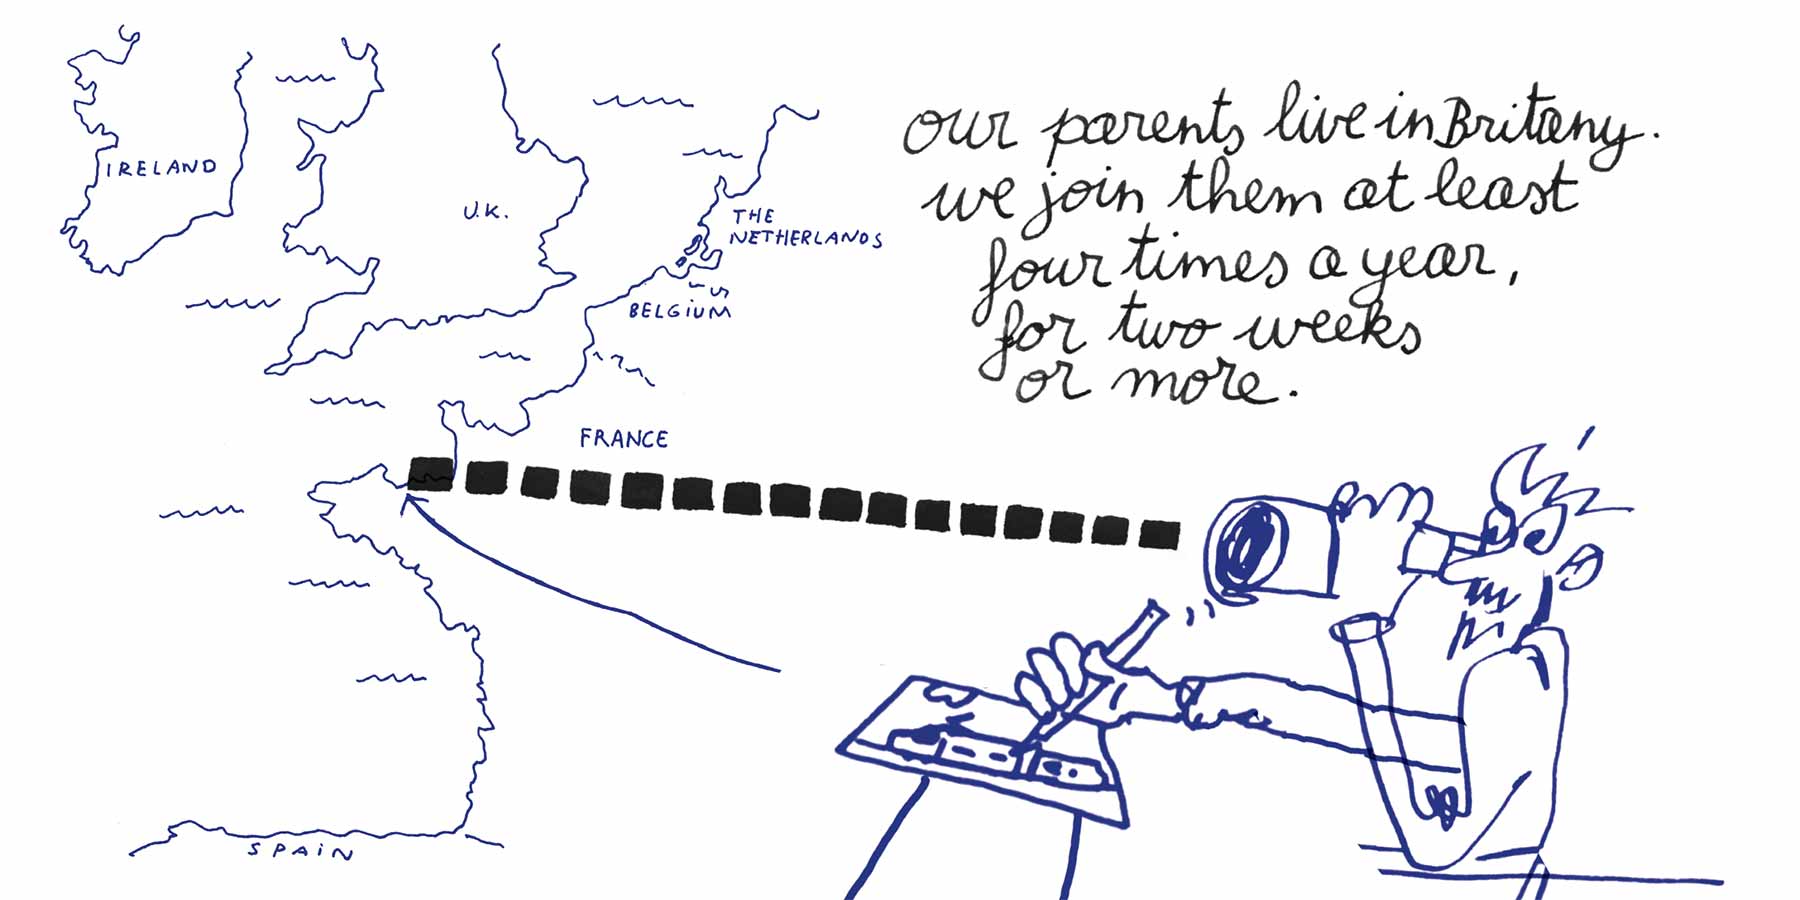 our parents live in Britany.
we join them at least
four times a year,
for two weeks
or more.
IRELAND
U.K.
THE
NETHERLANDS
BELGIUM
FRANCE
SPAIN